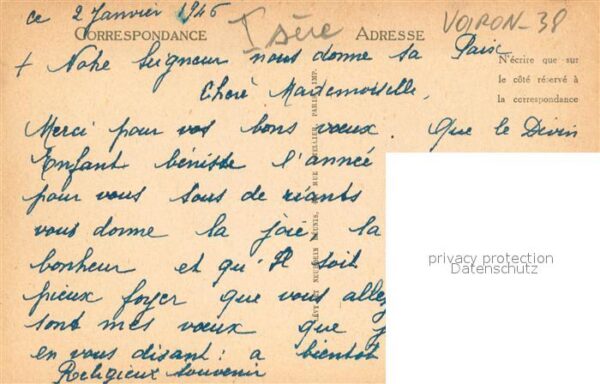 ce 2 Janvier 1946
Isère
VOIRON-38
CORRESPONDANCE
ADRESSE
+ Notre Seigneur nous donne sa Paix
N'écrire que sur
le côté réservé à
la correspondance
Cheré Mademoiselle,
Merci pour vos bons vœux. Que le Divin
Enfant bénisse l'année
pour vous Sous de riants
vous donne la joie, la
bonheur et qu'Il soit
pieux foyer que vous alle
sont mes vœux que j
en vous disant: a bientot
Religieux souvenir
LÉVY ET NEURDEIN RÉUNIS, RUE LETELLIER, PARIS IMP.
privacy protection
Datenschutz